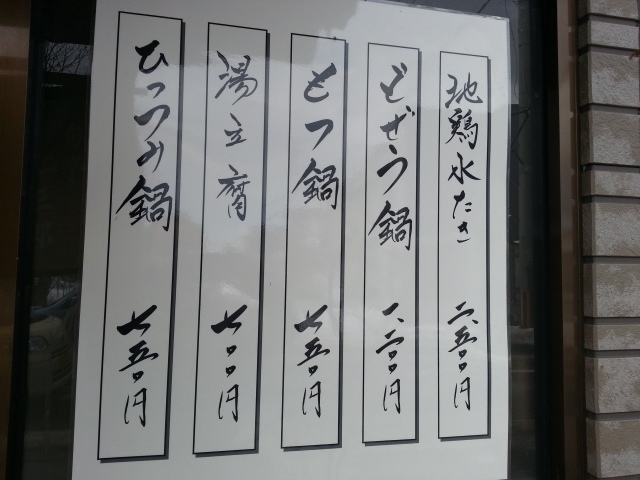 地鶏水たき 二、五〇〇円
どぜう鍋 一、二〇〇円
もつ鍋 七五〇円
湯豆腐 七〇〇円
ひっつみ鍋 七五〇円